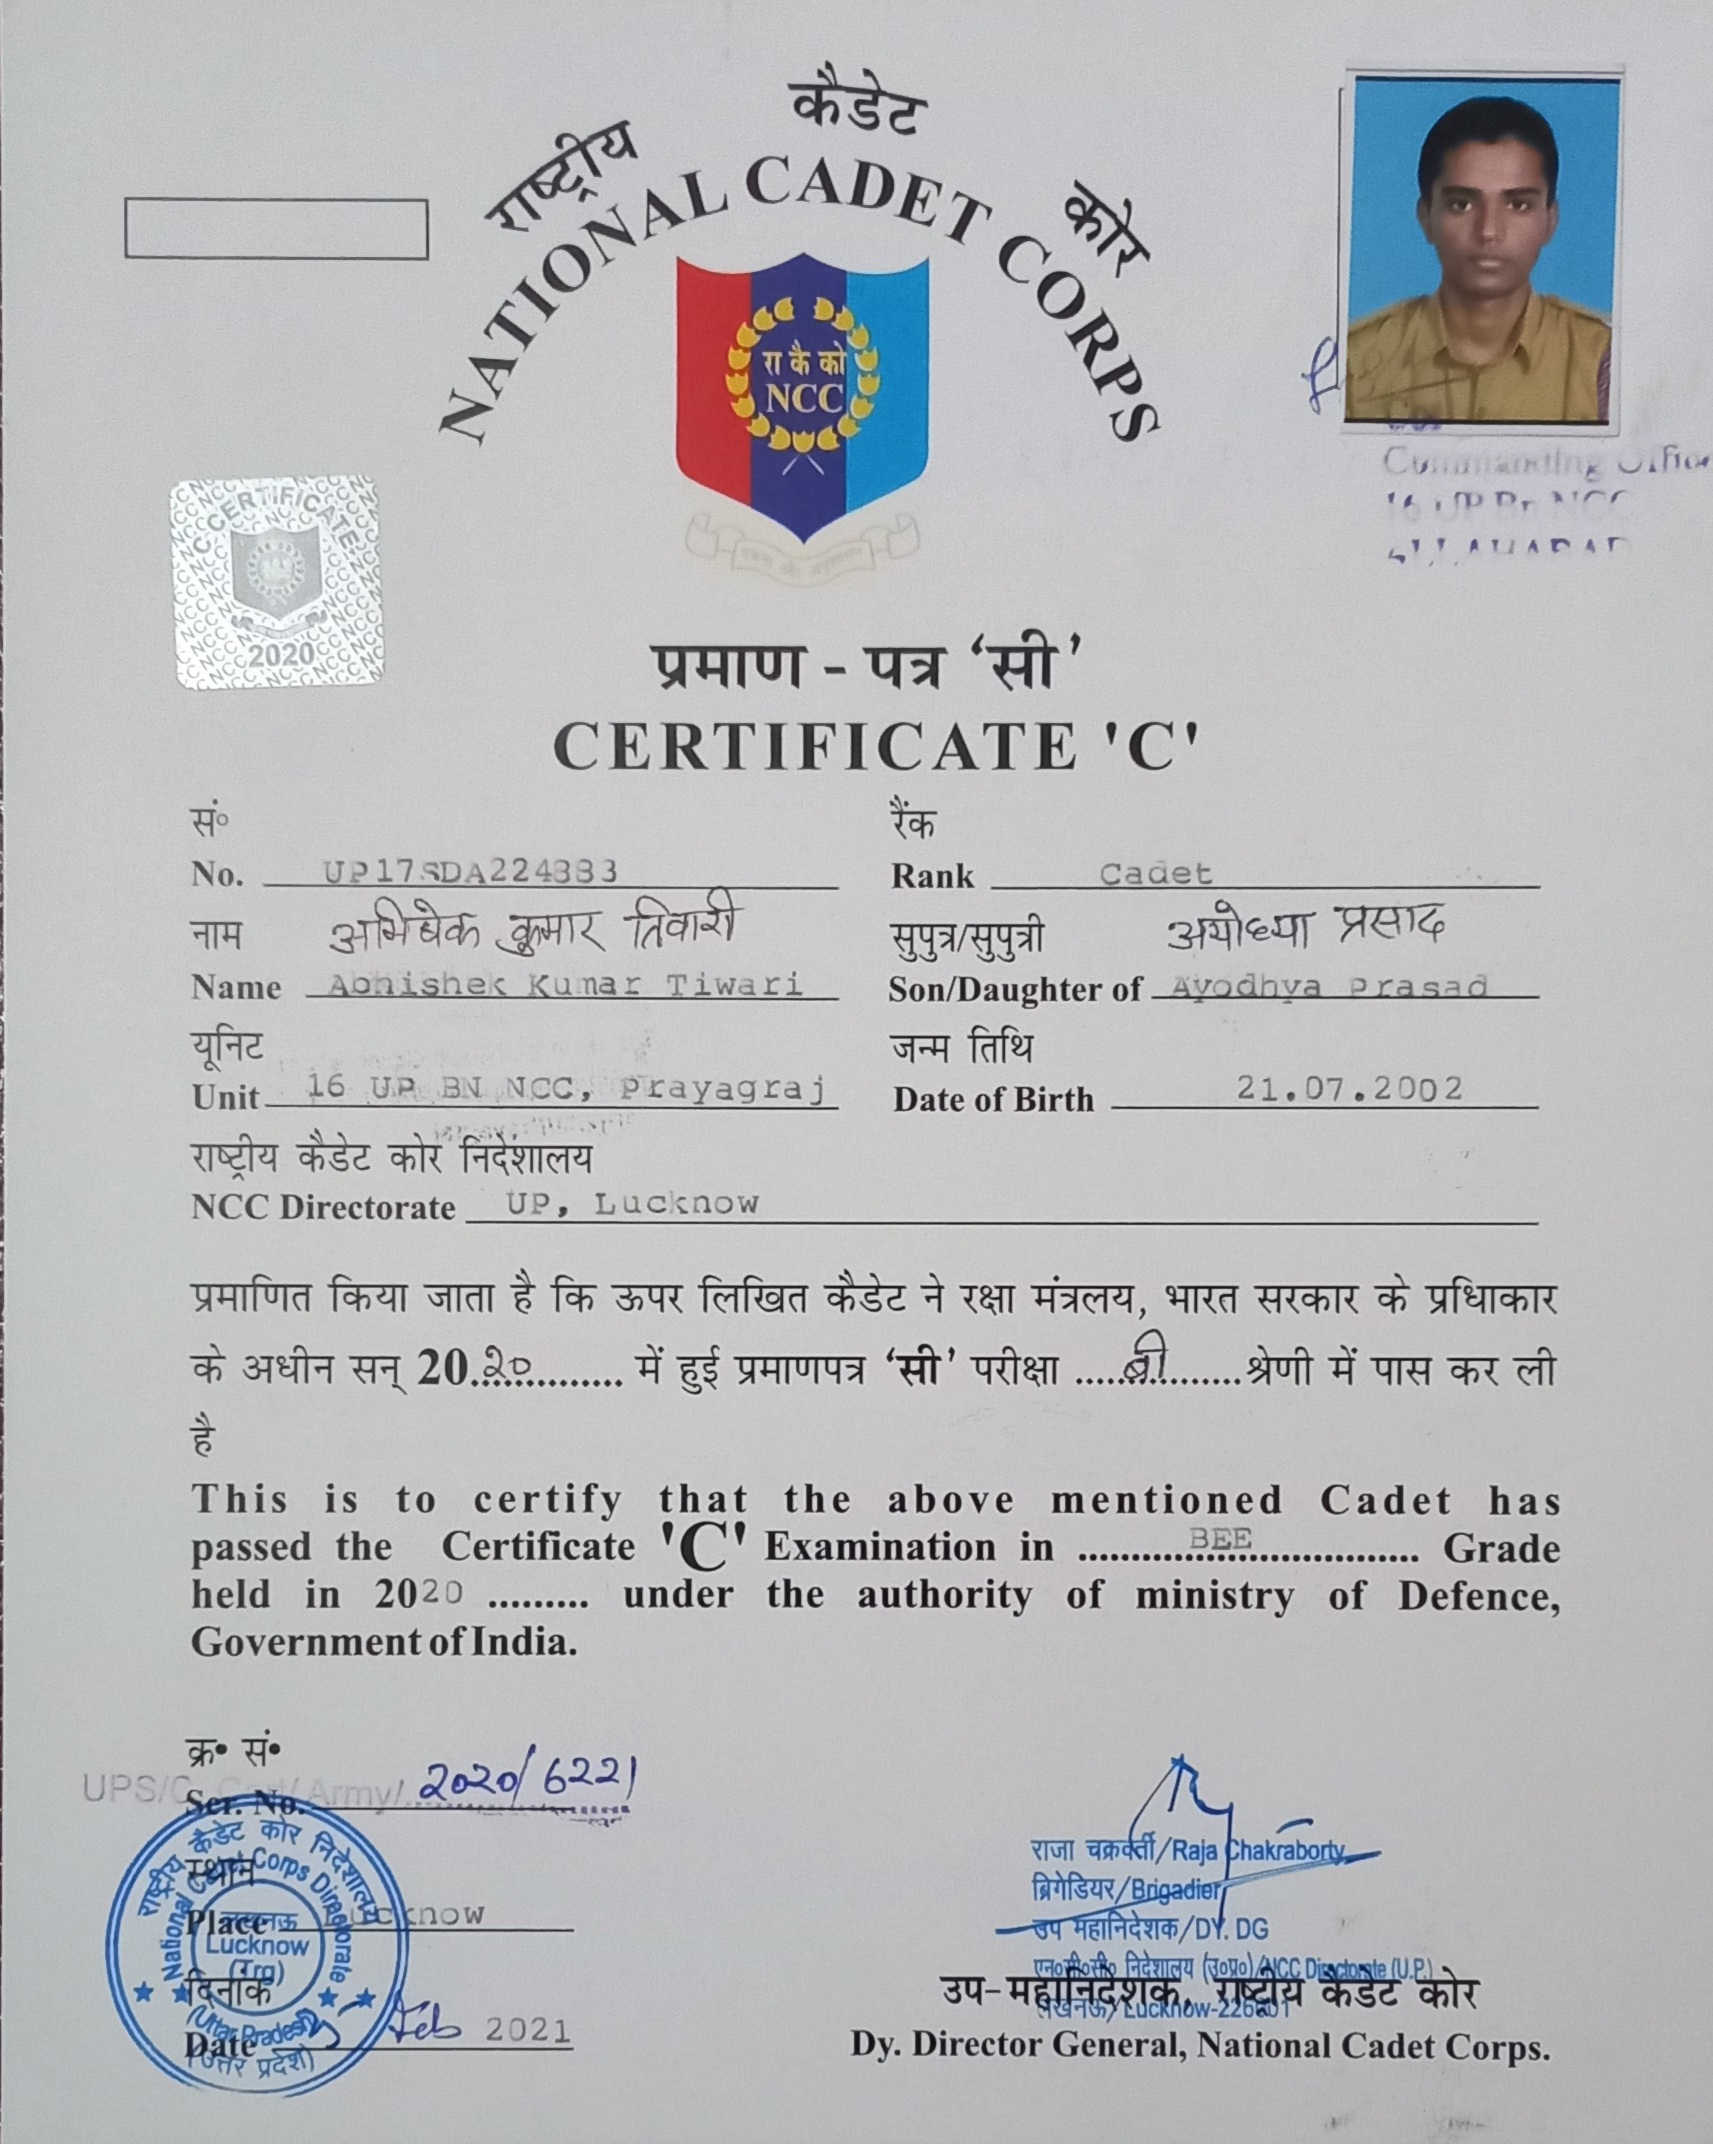 राष्ट्रीय कैडेट कोर
NATIONAL CADET CORPS
रा कै को
NCC
Commanding Officer
16 UP Bn NCC
ALLAHABAD
CERTIFICATE
2020
प्रमाण - पत्र ‘सी’
CERTIFICATE 'C'
सं०
No. UP17SDA224883
रैंक
Rank Cadet
नाम अभिषेक कुमार तिवारी
Name Abhishek Kumar Tiwari
सुपुत्र/सुपुत्री अयोध्या प्रसाद
Son/Daughter of Ayodhya Prasad
यूनिट
Unit 16 UP BN NCC, Prayagraj
जन्म तिथि
Date of Birth 21.07.2002
राष्ट्रीय कैडेट कोर निर्देशालय
NCC Directorate UP, Lucknow
प्रमाणित किया जाता है कि ऊपर लिखित कैडेट ने रक्षा मंत्रलय, भारत सरकार के प्रधिाकार
के अधीन सन् 20.२०............. में हुई प्रमाणपत्र ‘सी’ परीक्षा .....बी..........श्रेणी में पास कर ली
है
This is to certify that the above mentioned Cadet has
passed the Certificate 'C' Examination in ............BEE................ Grade
held in 2020 ......... under the authority of ministry of Defence,
Government of India.
क्र॰ सं॰
UPS/C Cert/Army/
Ser. No. 2020/6221
स्थान
Place Lucknow
दिनांक
Date Feb 2021
राष्ट्रीय कैडेट कोर निदेशालय
National Cadet Corps Directorate
लखनऊ
Lucknow
(Trg)
(Uttar Pradesh)
(उत्तर प्रदेश)
राजा चक्रवर्ती/Raja Chakraborty
ब्रिगेडियर/Brigadier
उप महानिदेशक/DY. DG
एन०सी०सी० निदेशालय (उ०प्र०)/NCC Directorate (U.P.)
लखनऊ/Lucknow-226001
उप-महानिदेशक, राष्ट्रीय कैडेट कोर
Dy. Director General, National Cadet Corps.